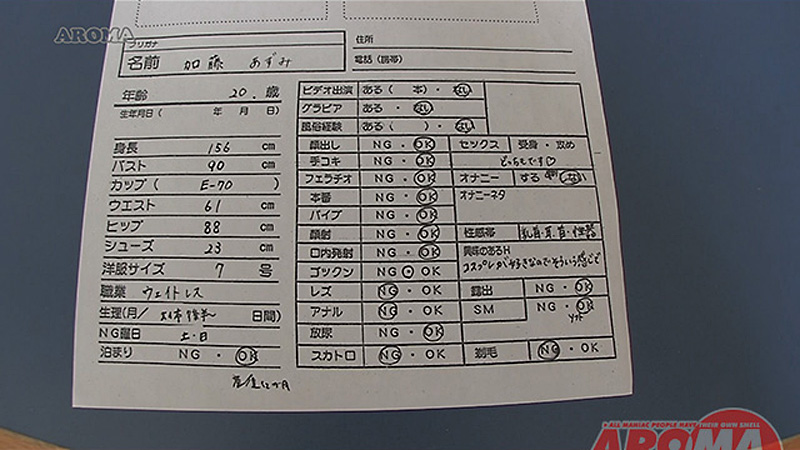 AROMA
フリガナ
名前 加藤 あずみ
住所
電話（携帯）
年齢 20.歳
生年月日（ 年 月 日）
身長 156 cm
バスト 90 cm
カップ（ E-70 ）
ウエスト 61 cm
ヒップ 88 cm
シューズ 23 cm
洋服サイズ 7 号
職業 ウェイトレス
生理（月／ 日間）
NG曜日 土・日
泊まり NG・OK
ビデオ出演 ある（ 本）・なし
グラビア ある ・ なし
風俗経験 ある（ ）・なし
顔出し NG・OK
手コキ NG・OK
フェラチオ NG・OK
本番 NG・OK
バイブ NG・OK
顔射 NG・OK
口内発射 NG・OK
ゴックン NG・OK
レズ NG・OK
アナル NG・OK
放尿 NG・OK
スカトロ NG・OK
セックス 受身・攻め
どっちもです♡
オナニー する しない
オナニーネタ
性感帯 乳首・耳・首・性器
興味のあるH
コスプレが好きなのでそういう感じで
露出 NG・OK
SM NG・OK
ソフト
剃毛 NG・OK
ALL MANIAC PEOPLE HAVE THEIR OWN SHELL
AROMA